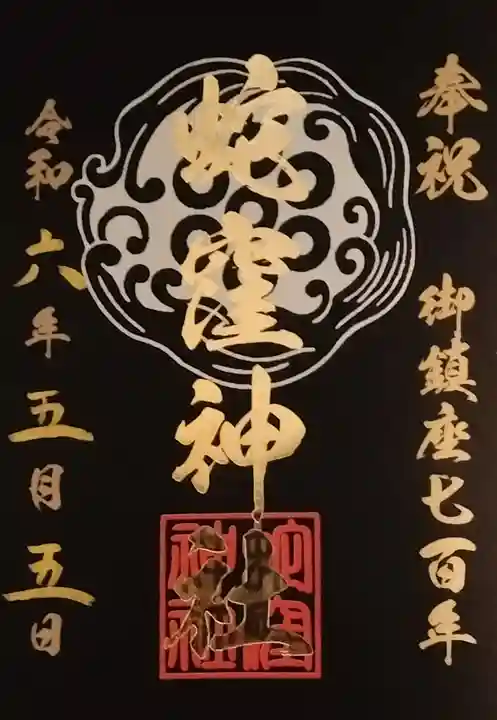 奉祝 御鎮座七百年
蛇窪神社
令和六年五月五日
蛇窪神社